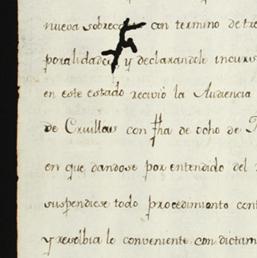 nueva sobrec con termino de tre
poralidades y declarandole incurs
en este estado recivió la Audiencia
de Cruillas con fha de ocho de
en que dandose por entendido del
suspendiese todo procedimiento cont
y resolbia lo conveniente con dictam